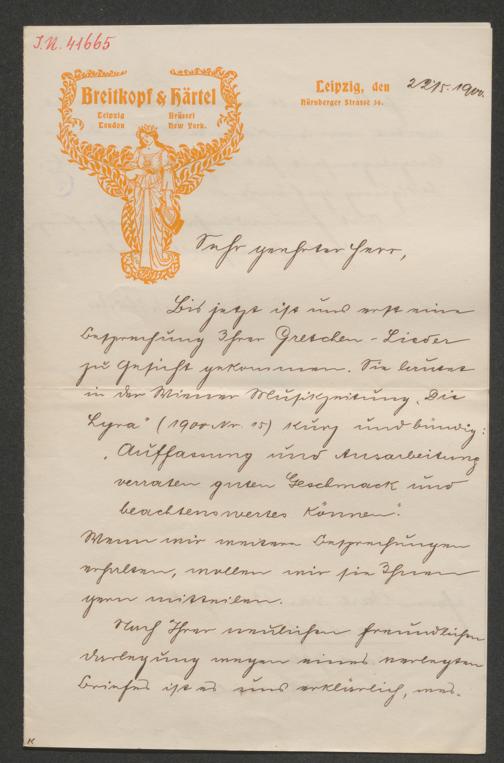 J.N. 41665
Breitkopf & Härtel
Leipzig Brüssel
London New York.
Leipzig, den 22/5.1900.
Nürnberger Strasse 36.
Sehr geehrter Herr,
Bis jetzt ist uns erst eine
Besprechung Ihrer Gretchen-Lieder
zu Gesicht gekommen. Sie lautet
in der Wiener Musikzeitung „Die
Lyra" (1900 Nr. 15) kurz und bündig:
„Auffassung und Ausarbeitung
verraten guten Geschmack und
beachtenswertes Können".
Wenn wir weitere Besprechungen
erhalten, wollen wir sie Ihnen
gern mitteilen.
Nach Ihrer neulichen freundlichen
Darlegung wegen eines verlegten
Briefes ist es uns erklärlich, wes-
K